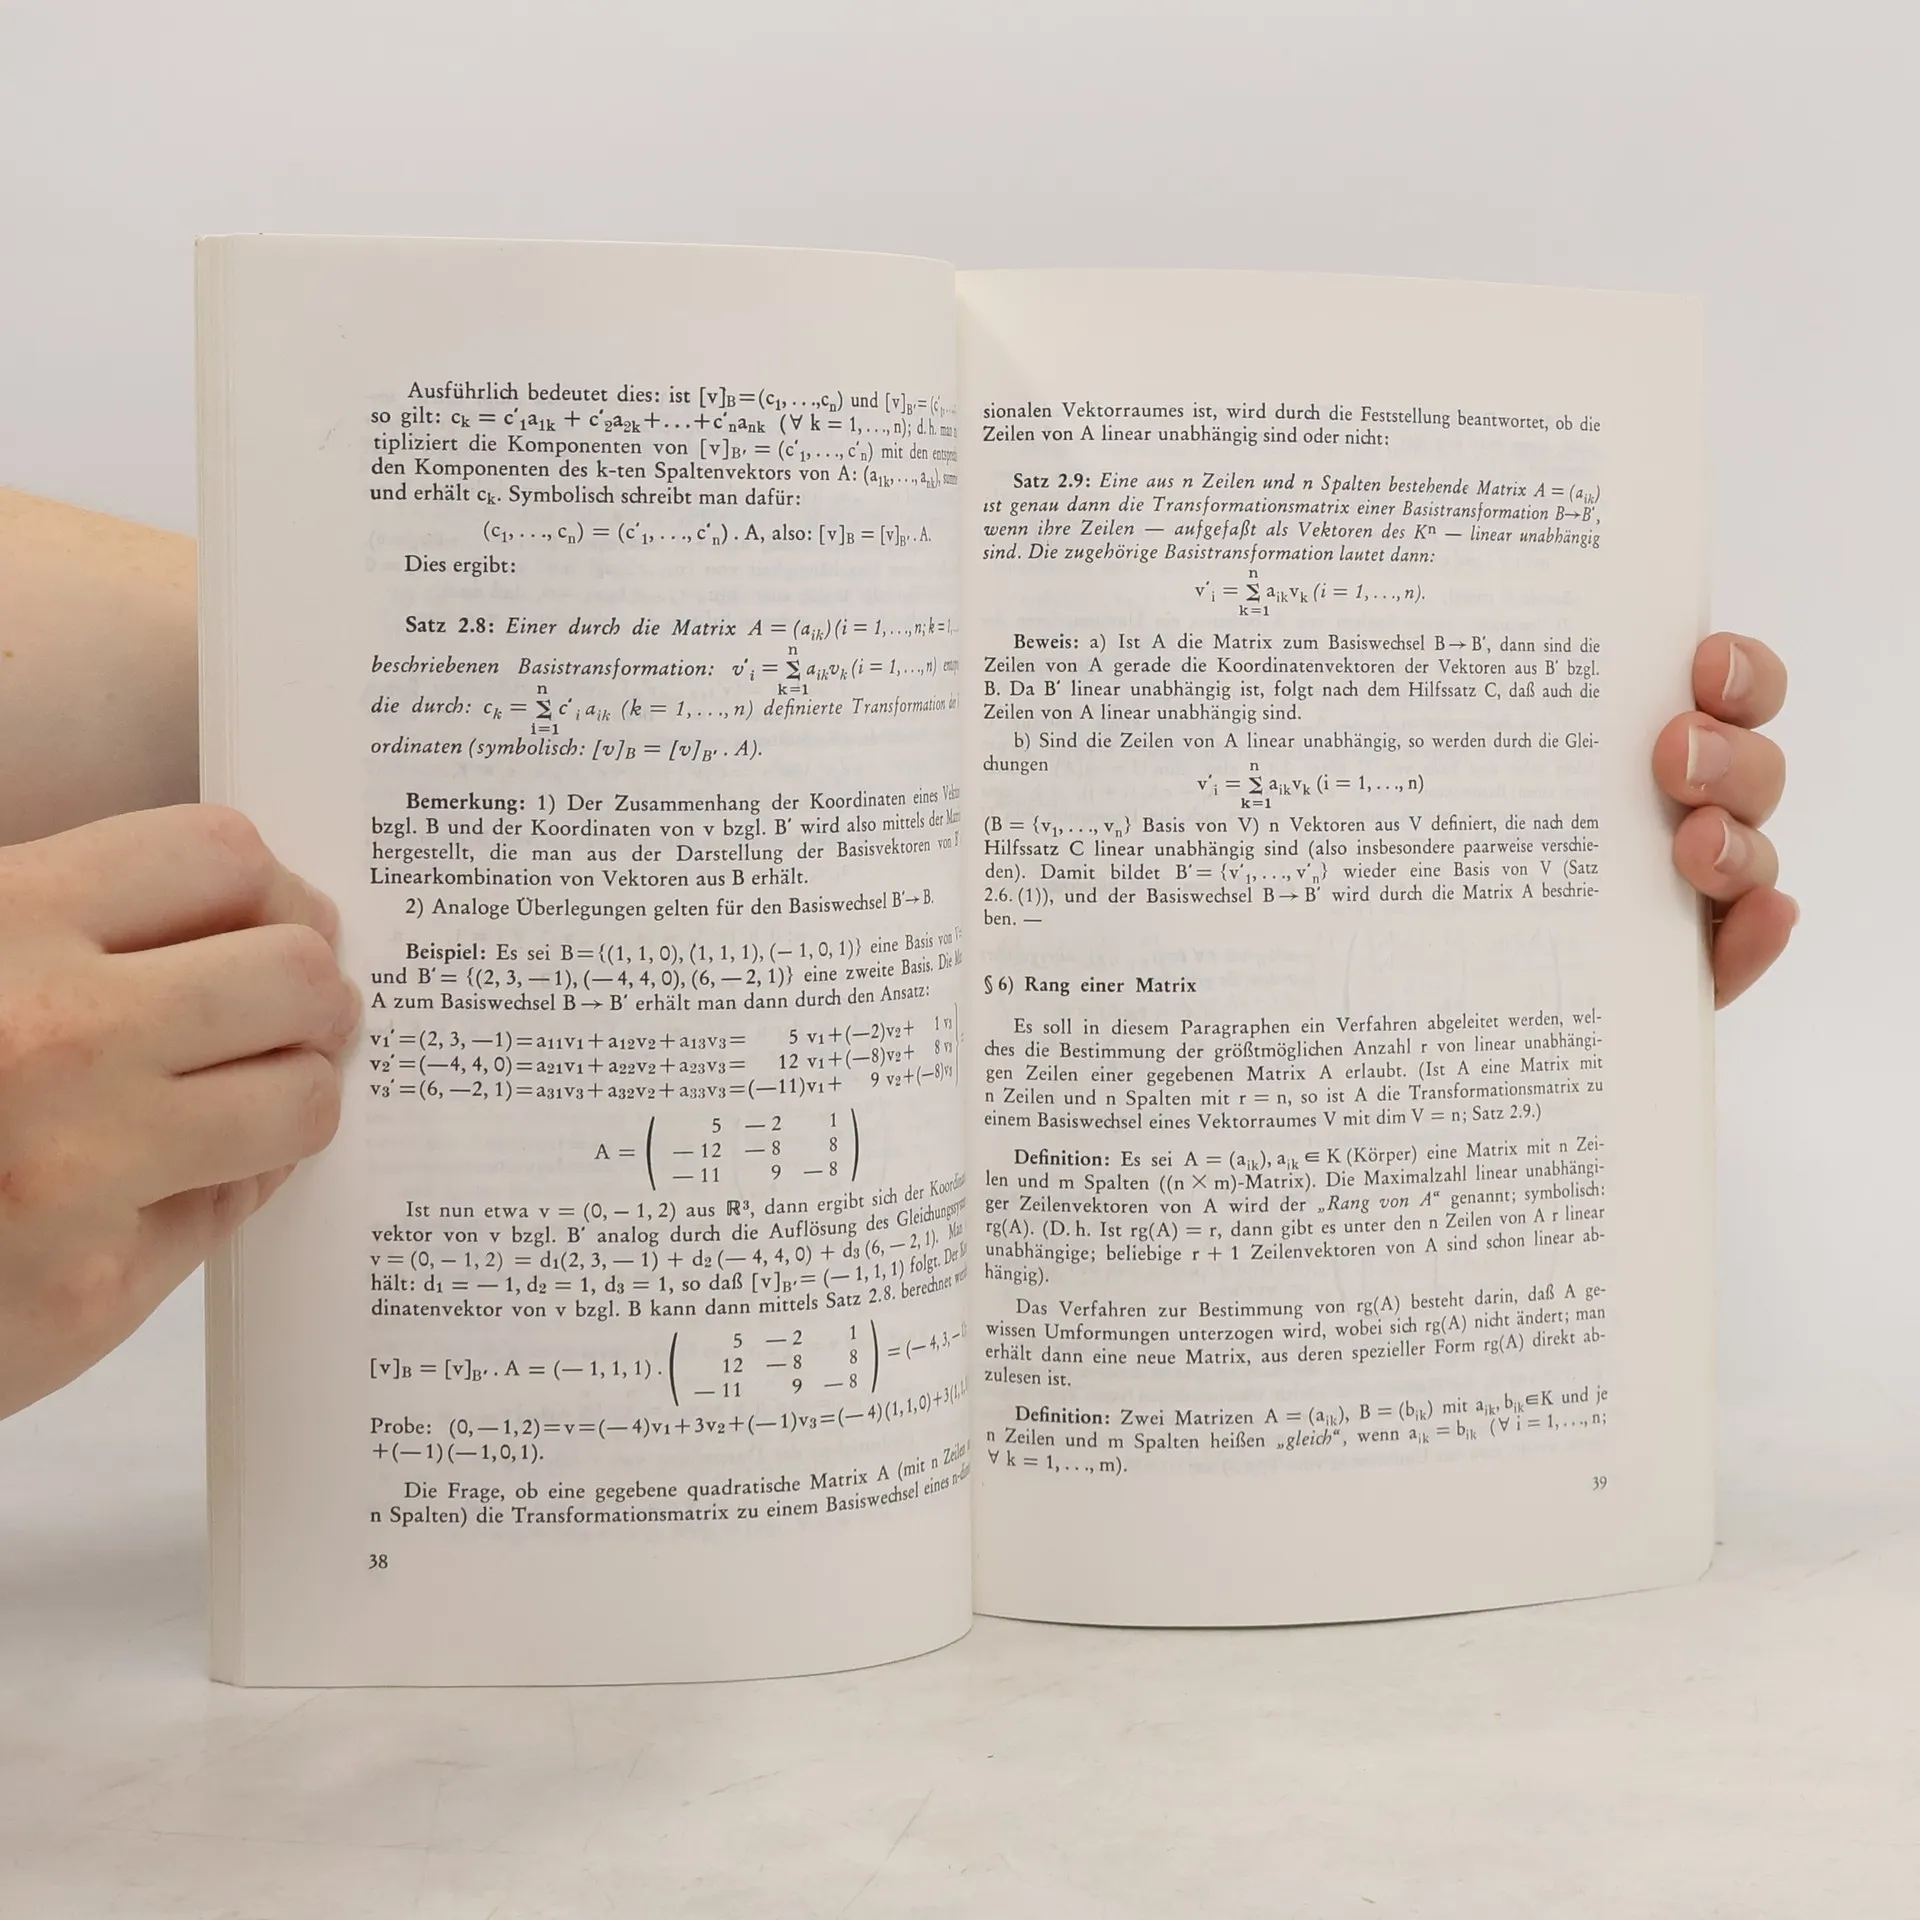 Ausführlich bedeutet dies: ist [v]B=(c₁,...,cₙ) und [v]B′=(c′₁,...
so gilt: cₖ = c′₁a₁ₖ + c′₂a₂ₖ+...+c′ₙaₙₖ (∀ k = 1,...,n); d. h. man
tipliziert die Komponenten von [v]B′ = (c′₁,..., c′ₙ) mit den
den Komponenten des k-ten Spaltenvektors von A: (a₁ₖ,..., aₙₖ),
und erhält cₖ. Symbolisch schreibt man dafür:
(c₁,..., cₙ) = (c′₁,..., c′ₙ) . A, also: [v]B = [v]B′ . A.
Dies ergibt:
Satz 2.8: Einer durch die Matrix A = (aᵢₖ) (i = 1,...,n; k = 1,...
beschriebenen Basistransformation: v′ᵢ = n Σ k=1 aᵢₖvₖ (i = 1,...,n)
die durch: cₖ = n Σ i=1 c′ᵢ aᵢₖ (k = 1,..., n) definierte Transformation der
ordinaten (symbolisch: [v]B = [v]B′ . A).
Bemerkung: 1) Der Zusammenhang der Koordinaten eines
bzgl. B und der Koordinaten von v bzgl. B′ wird also mittels der
hergestellt, die man aus der Darstellung der Basisvektoren von
Linearkombination von Vektoren aus B erhält.
2) Analoge Überlegungen gelten für den Basiswechsel B′→ B.
Beispiel: Es sei B={(1, 1, 0), (1, 1, 1), (— 1, 0, 1)} eine Basis von
und B′ = {(2, 3, —1), (—4, 4, 0), (6, —2, 1)} eine zweite Basis. Die
A zum Basiswechsel B → B′ erhält man dann durch den Ansatz:
v₁′=(2, 3, —1)=a₁₁v₁+a₁₂v₂+a₁₃v₃= 5 v₁+(—2)v₂+ 1 v₃
v₂′=(—4, 4, 0)=a₂₁v₁+a₂₂v₂+a₂₃v₃= 12 v₁+(—8)v₂+ 8 v₃
v₃′=(6, —2, 1)=a₃₁v₃+a₃₂v₂+a₃₃v₃=(—11)v₁+ 9 v₂+(—8)v₃
5 — 2 1
A = ( — 12 — 8 8 )
— 11 9 — 8
Ist nun etwa v = (0, — 1, 2) aus ℝ³, dann ergibt sich der
vektor von v bzgl. B′ analog durch die Auflösung des
v = (0, — 1, 2) = d₁(2, 3, — 1) + d₂ (— 4, 4, 0) + d₃ (6, — 2, 1). Man
hält: d₁ = — 1, d₂ = 1, d₃ = 1, so daß [v]B′ = (— 1, 1, 1) folgt. Der
dinatenvektor von v bzgl. B kann dann mittels Satz 2.8. berechnet
5 — 2 1
[v]B = [v]B′ . A = (— 1, 1, 1) . ( 12 — 8 8 ) = (— 4, 3, —
— 11 9 — 8
Probe: (0, —1,2)=v=(—4)v₁+3v₂+(—1)v₃=(—4)(1,1,0)+3(1,1,
+(—1)(—1,0,1).
Die Frage, ob eine gegebene quadratische Matrix A (mit n Zeilen
n Spalten) die Transformationsmatrix zu einem Basiswechsel eines
38
sionalen Vektorraumes ist, wird durch die Feststellung beantwortet, ob die
Zeilen von A linear unabhängig sind oder nicht:
Satz 2.9: Eine aus n Zeilen und n Spalten bestehende Matrix A = (aᵢₖ)
ist genau dann die Transformationsmatrix einer Basistransformation B→B′,
wenn ihre Zeilen — aufgefaßt als Vektoren des Kⁿ — linear unabhängig
sind. Die zugehörige Basistransformation lautet dann:
v′ᵢ = n Σ k=1 aᵢₖvₖ (i = 1,...,n).
Beweis: a) Ist A die Matrix zum Basiswechsel B→ B′, dann sind die
Zeilen von A gerade die Koordinatenvektoren der Vektoren aus B′ bzgl.
B. Da B′ linear unabhängig ist, folgt nach dem Hilfssatz C, daß auch die
Zeilen von A linear unabhängig sind.
b) Sind die Zeilen von A linear unabhängig, so werden durch die Glei-
chungen
v′ᵢ = n Σ k=1 aᵢₖvₖ (i = 1,..., n)
(B = {v₁,..., vₙ} Basis von V) n Vektoren aus V definiert, die nach dem
Hilfssatz C linear unabhängig sind (also insbesondere paarweise verschie-
den). Damit bildet B′= {v′₁,..., v′ₙ} wieder eine Basis von V (Satz
2.6. (1)), und der Basiswechsel B→ B′ wird durch die Matrix A beschrie-
ben. —
§ 6) Rang einer Matrix
Es soll in diesem Paragraphen ein Verfahren abgeleitet werden, wel-
ches die Bestimmung der größtmöglichen Anzahl r von linear unabhängi-
gen Zeilen einer gegebenen Matrix A erlaubt. (Ist A eine Matrix mit
n Zeilen und n Spalten mit r = n, so ist A die Transformationsmatrix zu
einem Basiswechsel eines Vektorraumes V mit dim V = n; Satz 2.9.)
Definition: Es sei A = (aᵢₖ), aᵢₖ ∈ K (Körper) eine Matrix mit n Zei-
len und m Spalten ((n × m)-Matrix). Die Maximalzahl linear unabhängi-
ger Zeilenvektoren von A wird der „Rang von A“ genannt; symbolisch:
rg(A). (D. h. Ist rg(A) = r, dann gibt es unter den n Zeilen von A r linear
unabhängige; beliebige r + 1 Zeilenvektoren von A sind schon linear ab-
hängig).
Das Verfahren zur Bestimmung von rg(A) besteht darin, daß A ge-
wissen Umformungen unterzogen wird, wobei sich rg(A) nicht ändert; man
erhält dann eine neue Matrix, aus deren spezieller Form rg(A) direkt ab-
zulesen ist.
Definition: Zwei Matrizen A = (aᵢₖ), B = (bᵢₖ) mit aᵢₖ, bᵢₖ∈K und je
n Zeilen und m Spalten heißen „gleich“, wenn aᵢₖ = bᵢₖ (∀ i = 1,..., n;
∀ k = 1,..., m).
39